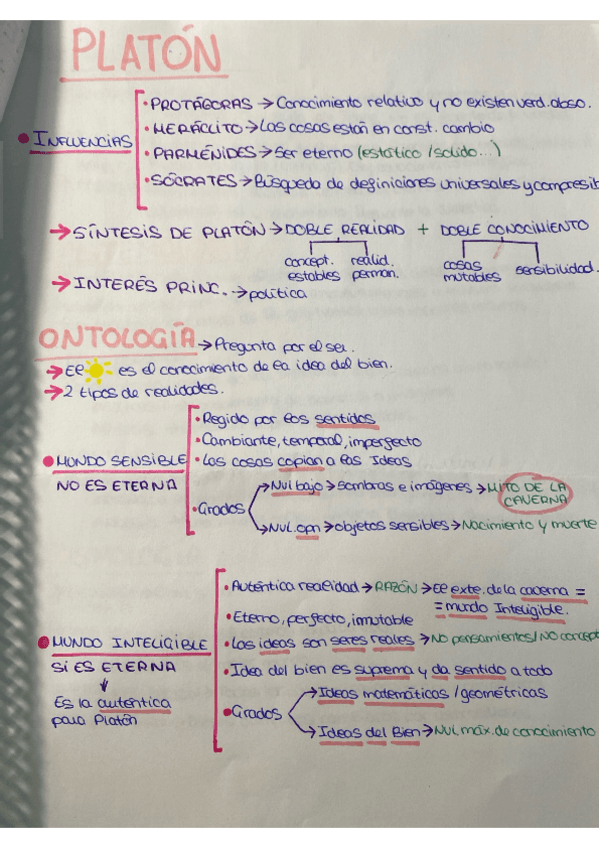 PLATÓN
• INFLUENCIAS
• PROTÁGORAS → Conocimiento relativo y no existen verd. abso.
• HERÁCLITO → Las cosas están en const. cambio
• PARMÉNIDES → Ser eterno (estático / solido...)
• SÓCRATES → Búsqueda de definiciones universales y compresib
→ SÍNTESIS DE PLATÓN → DOBLE REALIDAD + DOBLE CONOCIMIENTO
concept. estables
realid. perman.
cosas mutables
sensibilidad.
→ INTERÉS PRINC. → política
ONTOLOGÍA → Pregunta por el ser.
→ El ☀ es el conocimiento de la idea del bien.
→ 2 tipos de realidades.
• MUNDO SENSIBLE
NO ES ETERNA
• Regido por los sentidos
• Cambiante, temporal, imperfecto
• Las cosas copian a las Ideas
• Grados
→ Nvl bajo → sombras e imágenes → MITO DE LA CAVERNA
→ Nvl. opn → objetos sensibles → Nacimiento y muerte
• MUNDO INTELIGIBLE
SI ES ETERNA
↓
Es la autentica
para Platón
• Auténtica realidad → RAZÓN → El exte. de la caverna =
= mundo Inteligible.
• Eterno, perfecto, inmutable
• Las ideas son seres reales → NO pensamientos/NO concept
• Idea del bien es suprema y da sentido a todo
• Grados
→ Ideas matemáticas / geométricas
→ Ideas del Bien → Nvl máx. de conocimiento